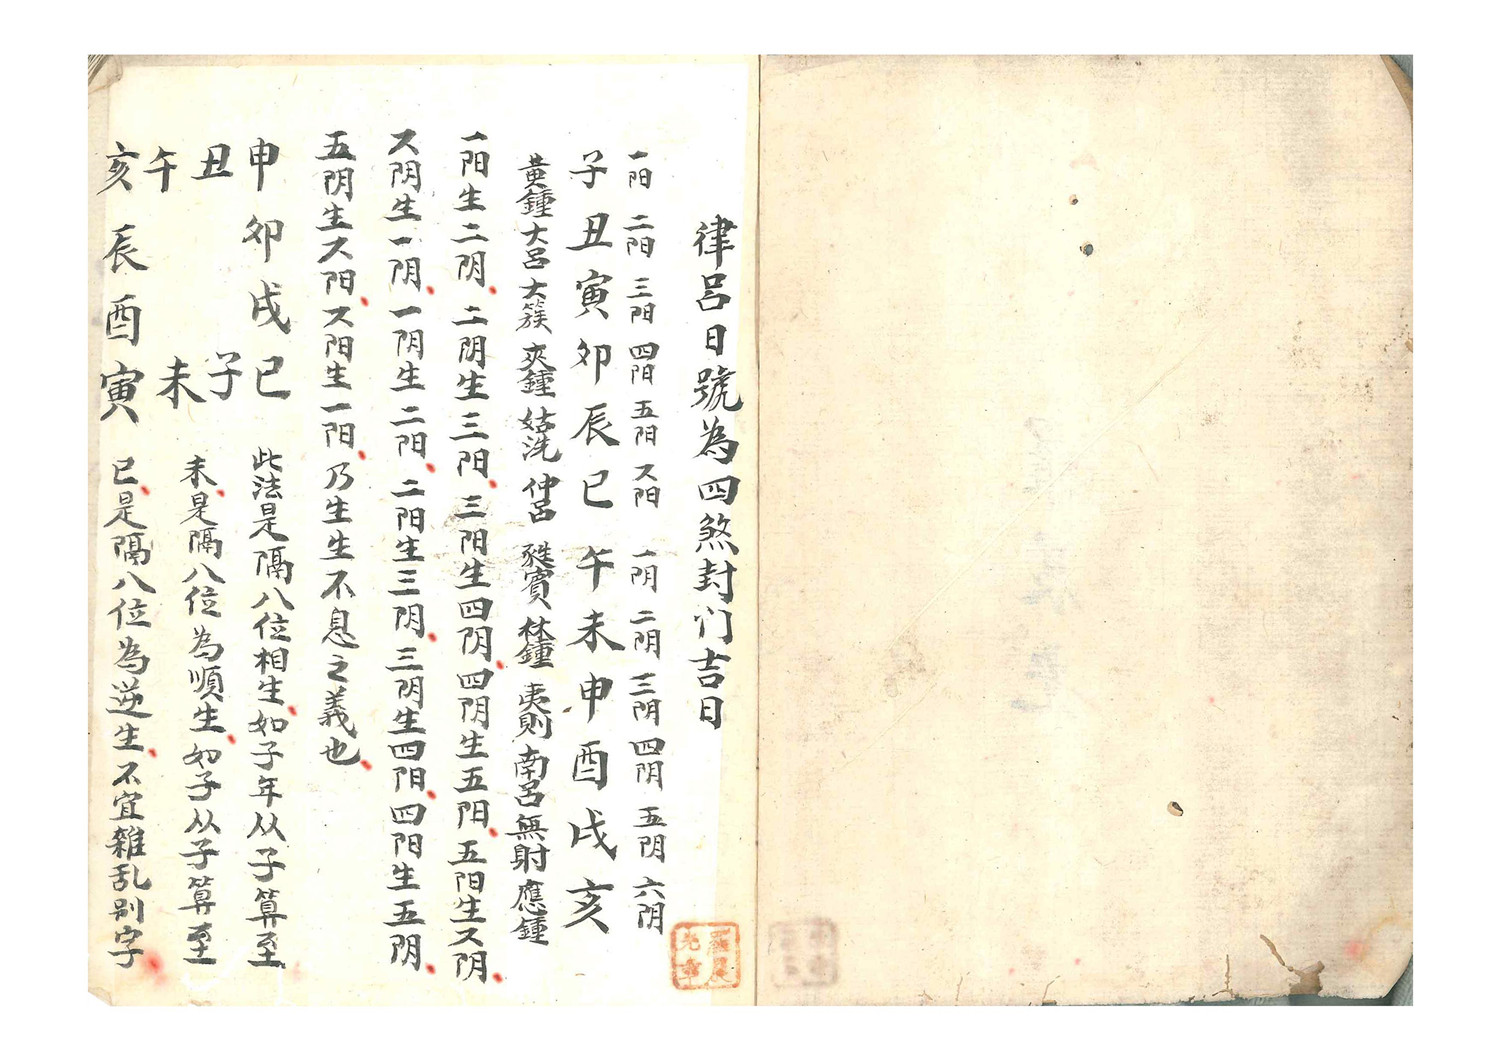 律呂日號為四煞封门吉日
一阳 二阳 三阳 四阳 五阳 六阳 一阴 二阴 三阴 四阴 五阴 六阴
子丑寅卯辰巳午未申酉戌亥
黃鍾 大呂 大簇 夾鍾 姑洗 仲呂 蕤賓 林鍾 夷則 南呂 無射 應鍾
一阳生二阴、二阴生三阳、三阳生四阴、四阴生五阳、五阳生六阴、
六阴生一阴、一阴生二阳、二阳生三阴、三阴生四阳、四阳生五阴、
五阴生六阳、六阳生一阳、乃生生不息之義也、
申 卯 戌 巳 此法是隔八位相生、如子年从子算至
丑 子 未是隔八位為順生、如子从子算至
午 未
亥 辰 酉 寅 巳、是隔八位為逆生、不宜雜乱别字